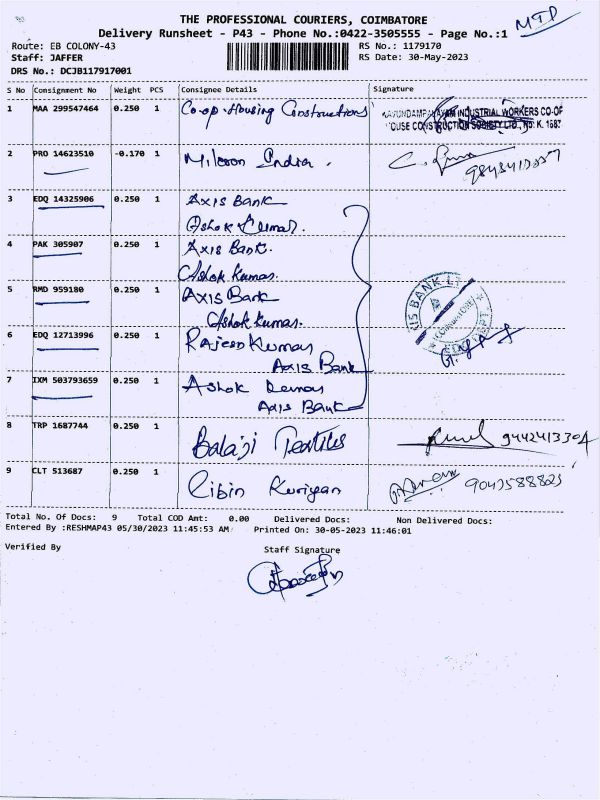 MTP
THE PROFESSIONAL COURIERS, COIMBATORE
Delivery Runsheet - P43 - Phone No.:0422-3505555 - Page No.:1
Route: EB COLONY-43
RS No.: 1179170
Staff: JAFFER
RS Date: 30-May-2023
DRS No.: DCJB117917001
S No Consignment No Weight PCS Consignee Details Signature
1 MAA 299547464 0.250 1 Co-op-Housing Constructions
INDUSTRIAL WORKERS CO-OP
CONSTRUCTION SOCIETY LTD.,
2 PRO 14623510 -0.170 1 Milcron India.
3 EDQ 14325906 0.250 1 Axis Bank
Ashok Kumar.
4 PAK 305907 0.250 1 Axis Bank.
Ashok Kumar.
5 RMD 959180 0.250 1 Axis Bank
Ashok Kumar.
AXIS BANK LTD
COIMBATORE
6 EDQ 12713996 0.250 1 Rajeev Kumar
Axis Bank
7 IXM 503793659 0.250 1 Ashok Kumar
Axis Bank
8 TRP 1687744 0.250 1 Balaji Textiles
9442413304
9 CLT 513687 0.250 1 Libin Kuriyan
Total No. Of Docs: 9 Total COD Amt: 0.00 Delivered Docs: Non Delivered Docs:
Entered By :RESHMAP43 05/30/2023 11:45:53 AM Printed On: 30-05-2023 11:46:01
Verified By
Staff Signature